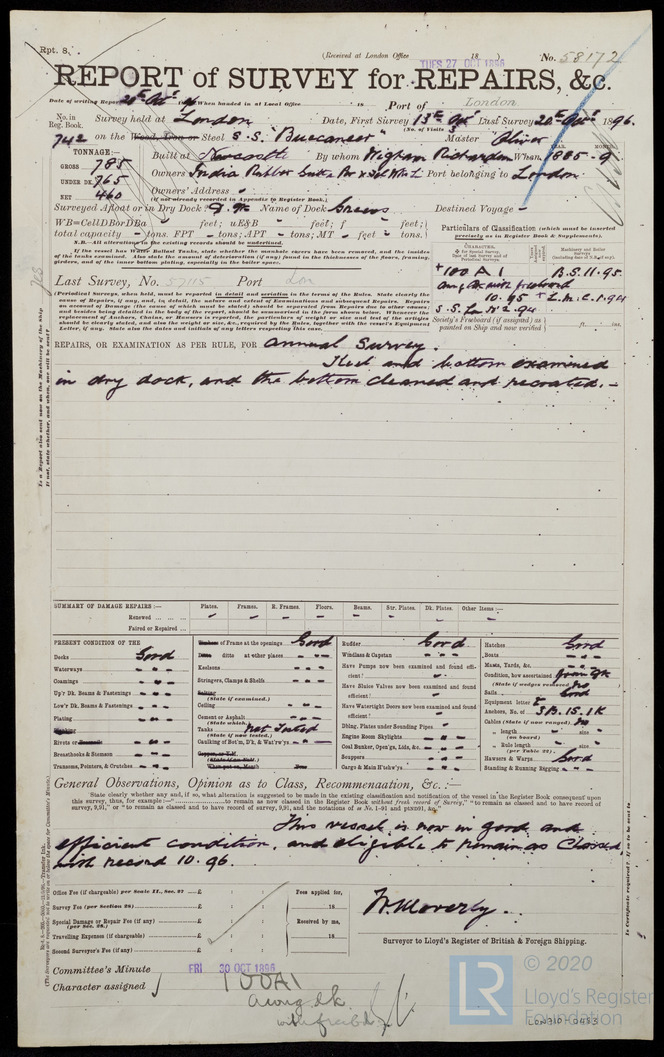 Rpt. 8.
(Received at London Office TUES 27 OCT 1896 18 ) No. 58172
REPORT of SURVEY for REPAIRS, &c.
Date of writing Report When handed in at Local Office Port of London
No. in Reg. Book. Survey held at London Date, First Survey 13th Last Survey 20th 1896.
(No. of Visits 3
742 on the Wood, Iron or Steel S.S. "Buccaneer" Master Oliver
TONNAGE:— Built at Newcastle By whom Wigham Richardson When 1885-9
GROSS 785
UNDER DK. 765
NET 460
Owners India Rubber Gutta Per & Tel Wks L Port belonging to London
Owners' Address -
(if not already recorded in Appendix to Register Book.)
Surveyed Afloat or in Dry Dock? Name of Dock Destined Voyage -
WB=CellDBorDBa feet; uE&B - feet; f - feet;
total capacity - tons. FPT - tons; APT - tons; MT - feet - tons.
N.B.—All alterations in the existing records should be underlined.
If the vessel has Water Ballast Tanks, state whether the manhole covers have been removed, and the insides of the tanks examined. Also state the amount of deterioration (if any) found in the thickness of the floors, framing, girders, and of the inner bottom plating, especially in the boiler space.
Particulars of Classification (which must be inserted precisely as in Register Book & Supplements).
+100 A1 B.S. 11.95
with freeboard
10.95 + L.M.C. 1.94
S.S. Lon No 2.94
Society's Freeboard (if assigned) as painted on Ship and now verified ft. ins.
Last Survey, No. 57115 Port Lon
(Periodical Surveys, when held, must be reported in detail and seriatim in the terms of the Rules. State clearly the cause of Repairs, if any, and, in detail, the nature and extent of Examinations and subsequent Repairs. Repairs on account of Damage (the cause of which must be stated) should be separated from Repairs due to other causes; and besides being detailed in the body of the report, should be summarised in the form shewn below. Whenever the replacement of Anchors, Chains, or Hawsers is reported, the particulars of weight or size and test of the articles should be clearly stated, and also the weight or size, &c., required by the Rules, together with the vessel's Equipment Letter, if any. State also the dates and initials of any letters respecting this case.)
REPAIRS, OR EXAMINATION AS PER RULE, FOR annual Survey.
Keel and bottom examined
in dry dock, and the bottom cleaned and recoated. -
SUMMARY OF DAMAGE REPAIRS:— Plates. Frames. R. Frames. Floors. Beams. Str. Plates. Dk. Plates. Other Items:—
Renewed ... ... ...
Faired or Repaired ...
PRESENT CONDITION OF THE
Decks Good
Waterways
Coamings
Up'r Dk. Beams & Fastenings
Low'r Dk. Beams & Fastenings
Plating
Rivets
Breasthooks & Stemson
Transoms, Pointers, & Crutches
of Frame at the openings Good
ditto at other places
Keelsons
Stringers, Clamps & Shelfs
(State if examined.)
Ceiling
Cement or Asphalt
(State which.)
Tanks not Tested
(State if now tested.)
Caulking of Bot'm, D'k, & Wat'rw'ys
Rudder Good
Windlass & Capstan
Have Pumps now been examined and found efficient?
Have Sluice Valves now been examined and found efficient?
Have Watertight Doors now been examined and found efficient?
Dblng. Plates under Sounding Pipes
Engine Room Skylights
Coal Bunker, Open'gs, Lids, &c.
Scuppers
Cargo & Main H'tchw'ys
Hatches Good
Boats
Masts, Yards, &c.
Condition, how ascertained from dk
(State if wedges removed) no
Sails Good
Equipment letter
Anchors, No. of 3B. 1S. 1K
Cables (State if now ranged) no
„ length „ size
(on board)
„ Rule length „ size
(per Table 22)
Hawsers & Warps Good
Standing & Running Rigging
General Observations, Opinion as to Class, Recommendation, &c.:—
State clearly whether any, and if so, what alteration is suggested to be made in the existing classification and notification of the vessel in the Register Book consequent upon this survey, thus, for example:—" to remain as now classed in the Register Book without fresh record of Survey," "to remain as classed and to have record of survey, 9,91," or "to remain classed and to have record of survey, 9,91, and the notations of
This vessel is now in good and
efficient condition, and eligible to remain as Classed,
with record 10.96.
Office Fee (if chargeable) per Scale II., Sec. 27 £ : :
Survey Fee (per Section 28) £ : :
Special Damage or Repair Fee (if any) £ : :
(per Sec. 28.)
Travelling Expenses (if chargeable) £ : :
Second Surveyor's Fee (if any) £ : :
Fees applied for, 18
Received by me, 18
Surveyor to Lloyd's Register of British & Foreign Shipping.
Committee's Minute FRI 30 OCT 1896
Character assigned 100A1
with freebd
© 2020
LR
Lloyd's Register
Foundation
LON310-0483